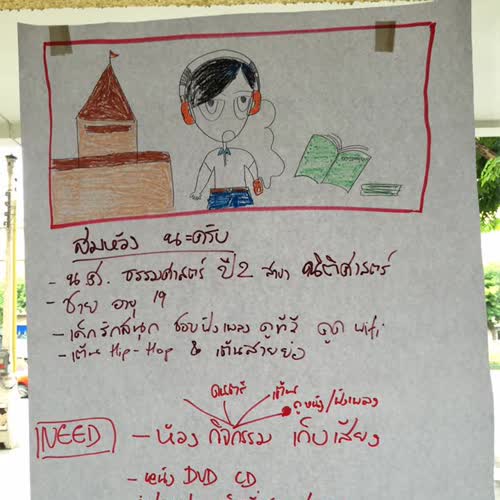 สมหวัง นะครับ
- นศ. ธรรมศาสตร์ ปี2 สาขา นิติศาสตร์
- ชาย อายุ 19
- เด็กรักสนุก ชอบฟังเพลง ดูทีวี ดูด wifi
- เต้น Hip-Hop & เต้นสายย่อ
ดนตรี เต้น ดูหนัง/ฟังเพลง
NEED - ห้อง กิจกรรม เก็บเสียง
- หนัง DVD CD